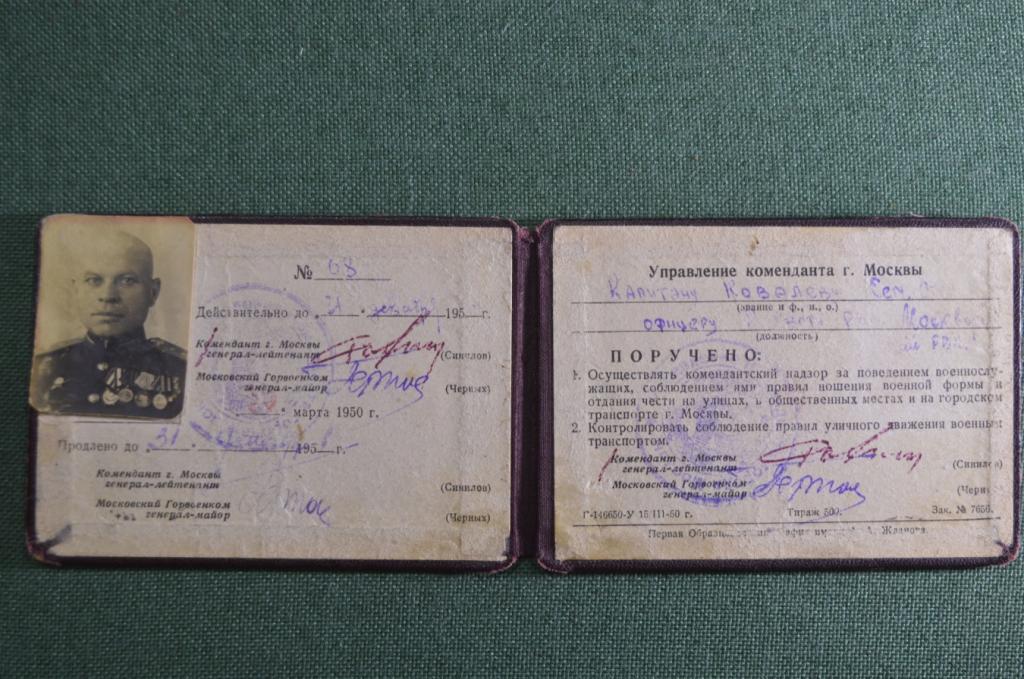 № 68
Действительно до 31 декабря 195 г.
Комендант г. Москвы
генерал-лейтенант (Синилов)
Московский Горвоенком
генерал-майор (Черных)
марта 1950 г.
Продлено до 31 195 г.
Комендант г. Москвы
генерал-лейтенант (Синилов)
Московский Горвоенком
генерал-майор (Черных)
Управление коменданта г. Москвы
Капитану Ковалеву
(звание и ф., и., о.)
офицеру Москвы
(должность)
ПОРУЧЕНО:
1. Осуществлять комендантский надзор за поведением военнослу-
жащих, соблюдением ими правил ношения военной формы и
отдания чести на улицах, в общественных местах и на городском
транспорте г. Москвы.
2. Контролировать соблюдение правил уличного движения военным
транспортом.
Комендант г. Москвы
генерал-лейтенант (Синилов)
Московский Горвоенком
генерал-майор (Черн
Г-146650-У 15/III-50 г. Тираж 500. Зак. № 7656.
Первая А. Жданова.